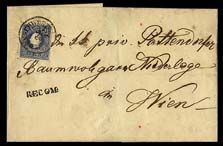 In kk priv. Pottendorfer
Baumwollgarn Niederlage
in
RECOM.
Wien